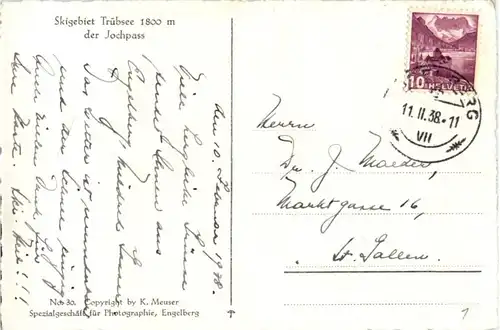 Skigebiet Trübsee 1800 m
der Jochpass
den 10. Februar 1938.
Viele herzliche Grüsse
sendet Ihnen aus
Engelberg,
Das Wetter ist wunderbar
und der Schnee
Auch vielen Dank für
Ihre Karte. Ski Heil!!!
No. 30. Copyright by K. Meuser
Spezialgeschäft für Photographie, Engelberg
10 HELVETIA
BERG
11. II. 38.-11
VII
Herrn
Dr. J. Maeder
Marktgasse 16,
St. Gallen.
1